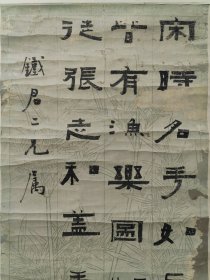 宋時名手如
皆有漁樂圖
從張志和蓋
鐵君二兄屬